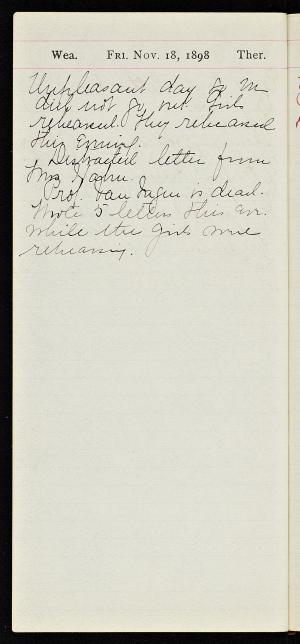 Wea. FRI. NOV. 18, 1898 Ther.
Unpleasant day so M
did not go out. Girls
rehearsed. They rehearsed
this Evening.
Distracted letter from
Mrs.
Prof. Van Ingen is dead.
Wrote 5 letters this Eve.
while the Girls were
rehearsing.